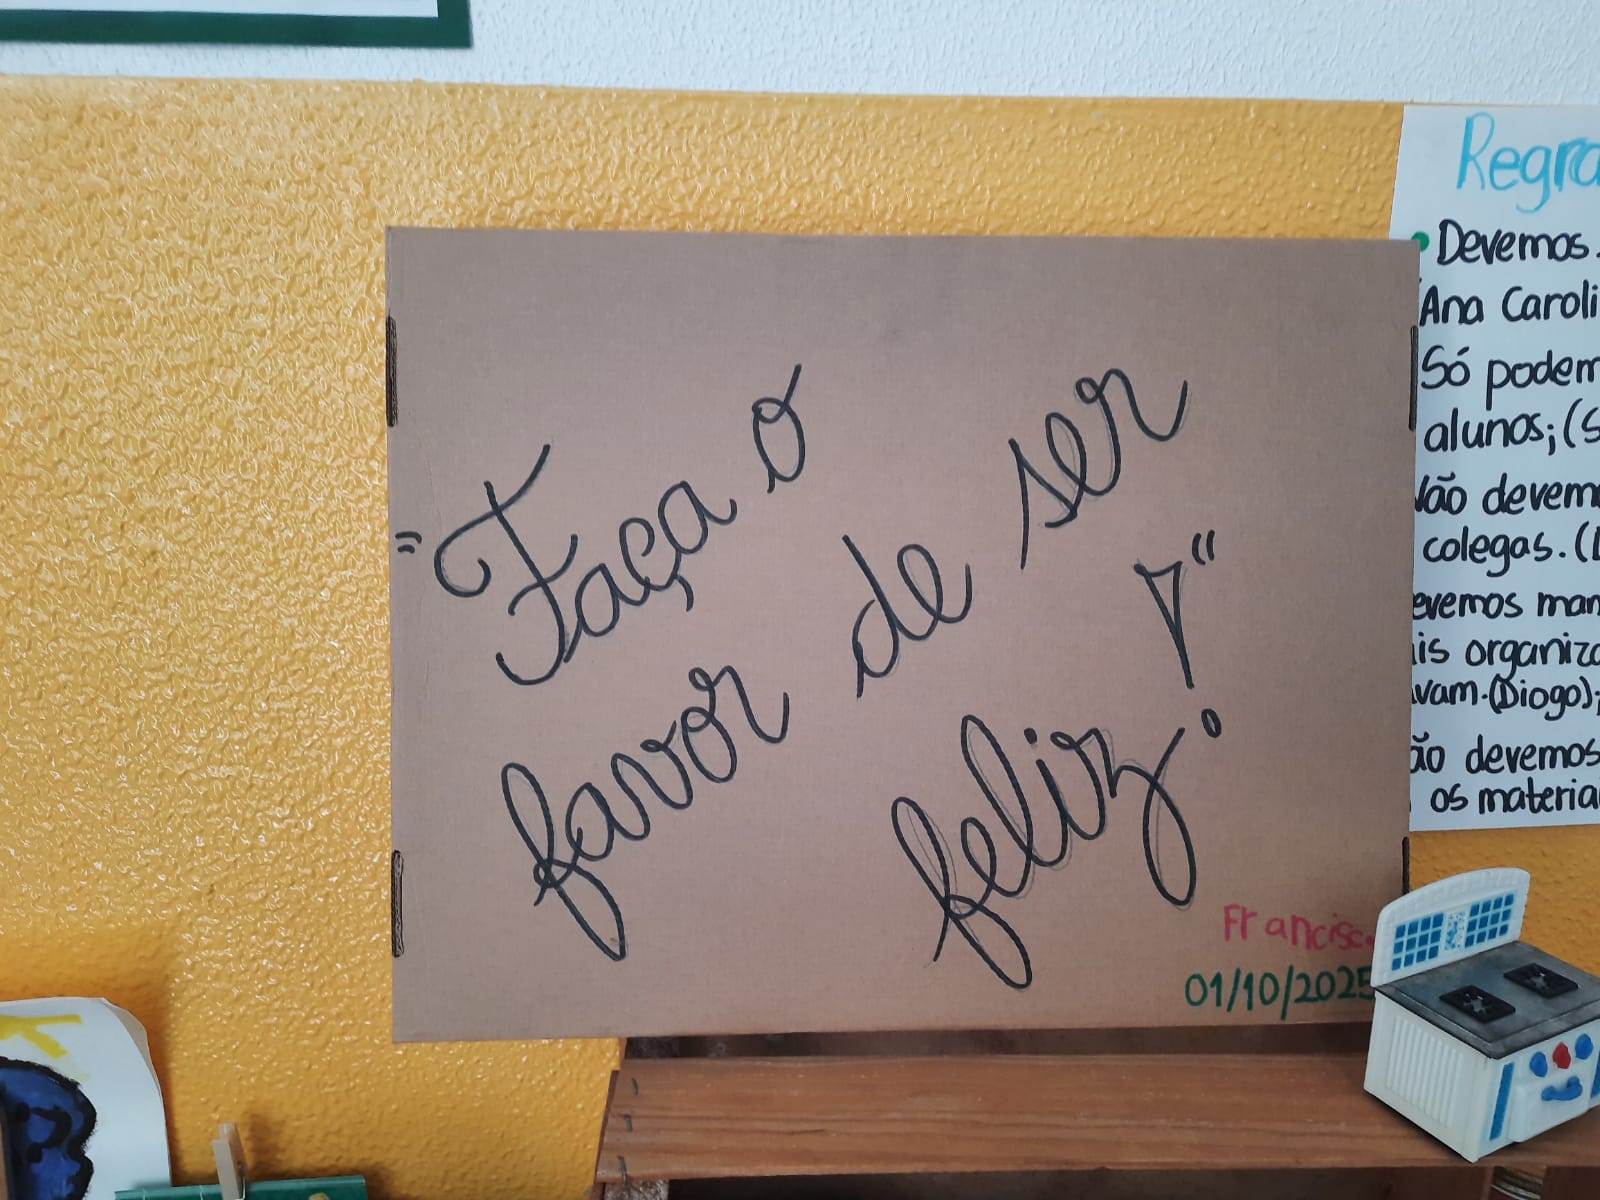 "Faça o
favor de ser
feliz!"
Francisc
01/10/2025
Regra
Devemos
Ana Caroli
Só podem
alunos; (S
Não devem
colegas. (D
evemos man
is organiza
vam. (Diogo);
ão devemos
os materiai